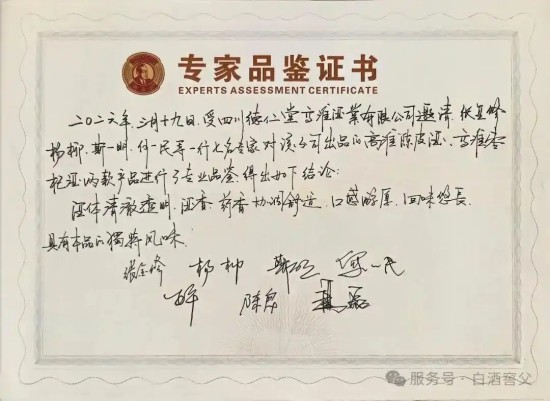 专家品鉴证书
EXPERTS ASSESSMENT CERTIFICATE
二〇二六年三月十九日,受四川德仁堂高淮酒业有限公司邀请,张金修
杨柳、斯一明、何一民等一行七名专家对该公司出品的高淮陈皮酒、高淮枣
杞酒两款产品进行了专业品鉴得出如下结论:
酒体清澈透明、酒香、药香协调舒适、口感醇厚、回味悠长、
具有本品的獨特风味。
杨柳
陈勇
服务号·白酒窖父